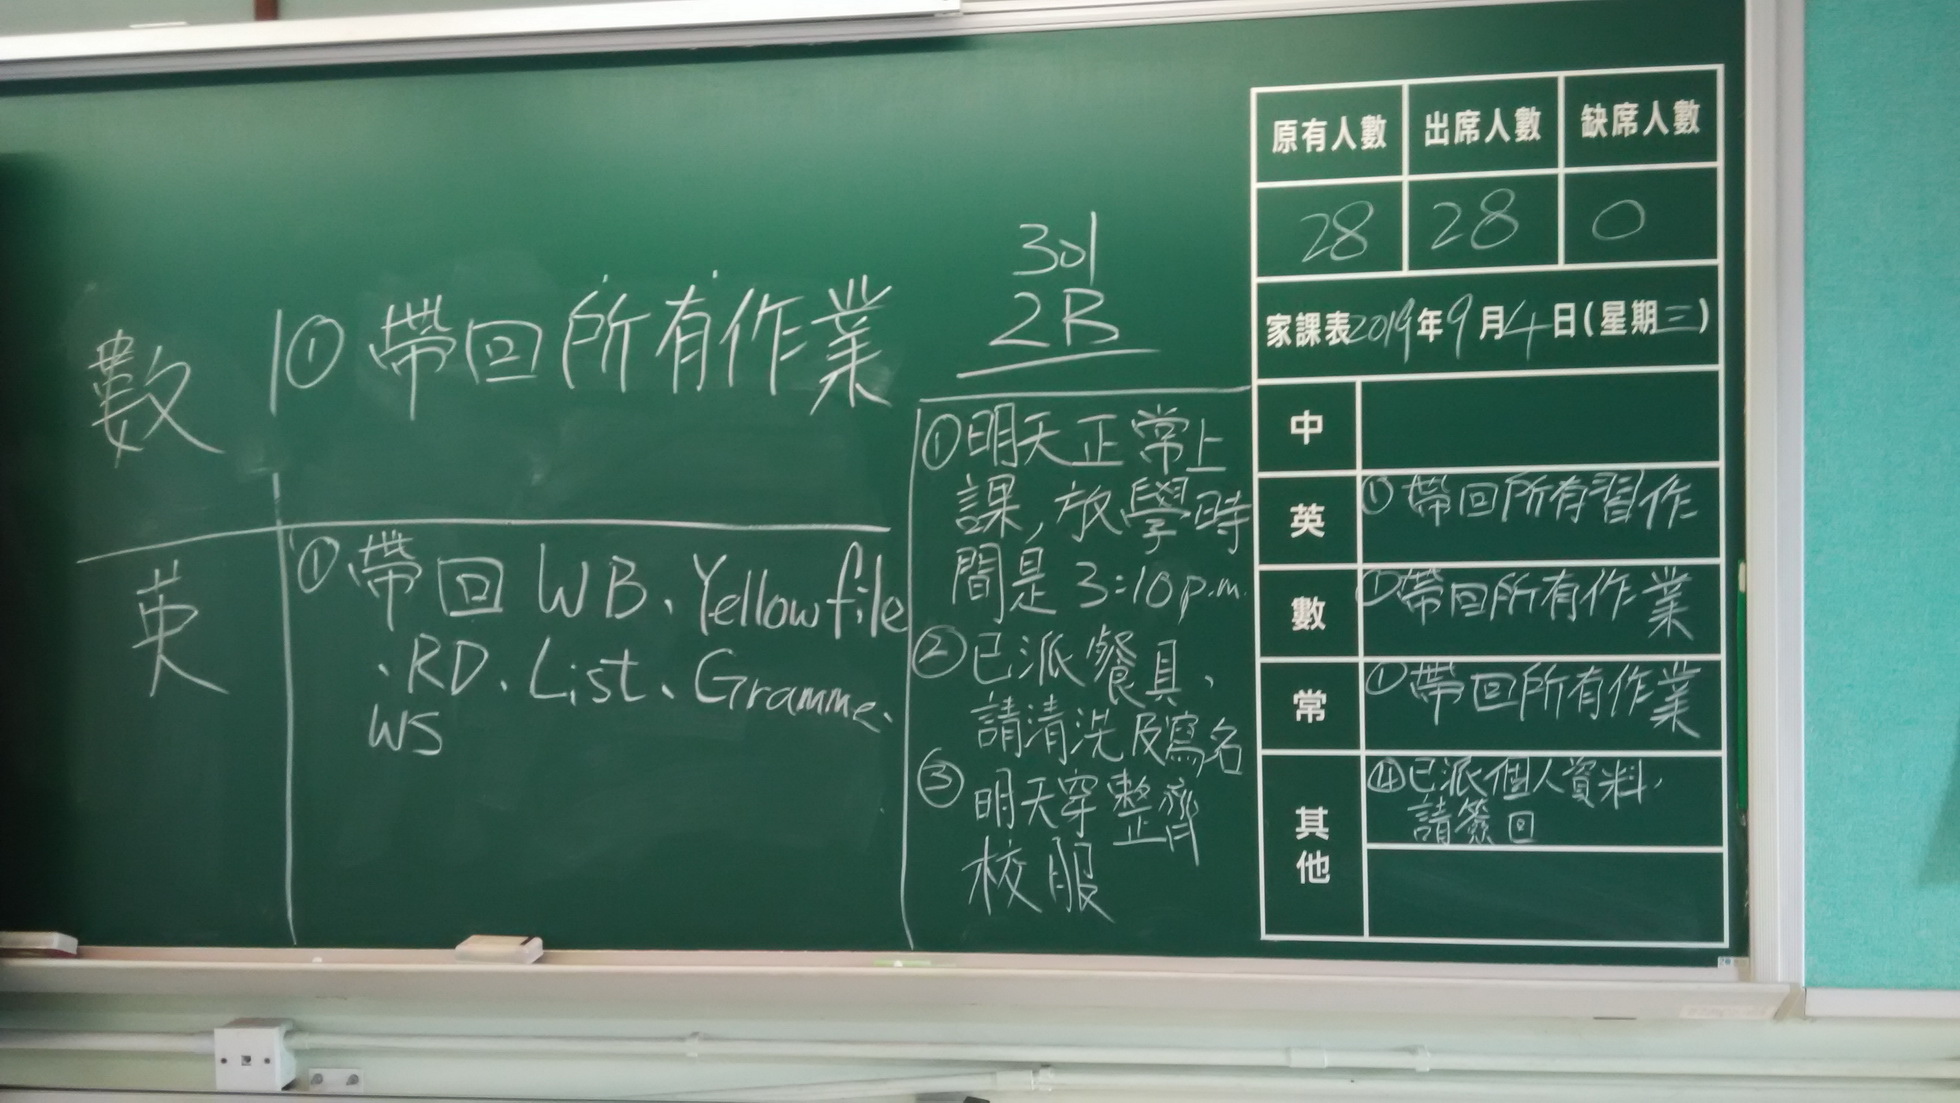 數 ①帶回所有作業
英 ①帶回WB、Yellow file
、RD、List、Gramme、
WS
301
2B
①明天正常上
課,放學時
間是3:10p.m.
②已派餐具、
請清洗及寫名
③明天穿整齊
校服
原有人數 出席人數 缺席人數
28 28 0
家課表2019年9月4日(星期三)
中
英 ①帶回所有習作
數 ①帶回所有作業
常 ①帶回所有作業
其他 ④已派個人資料,
請簽回